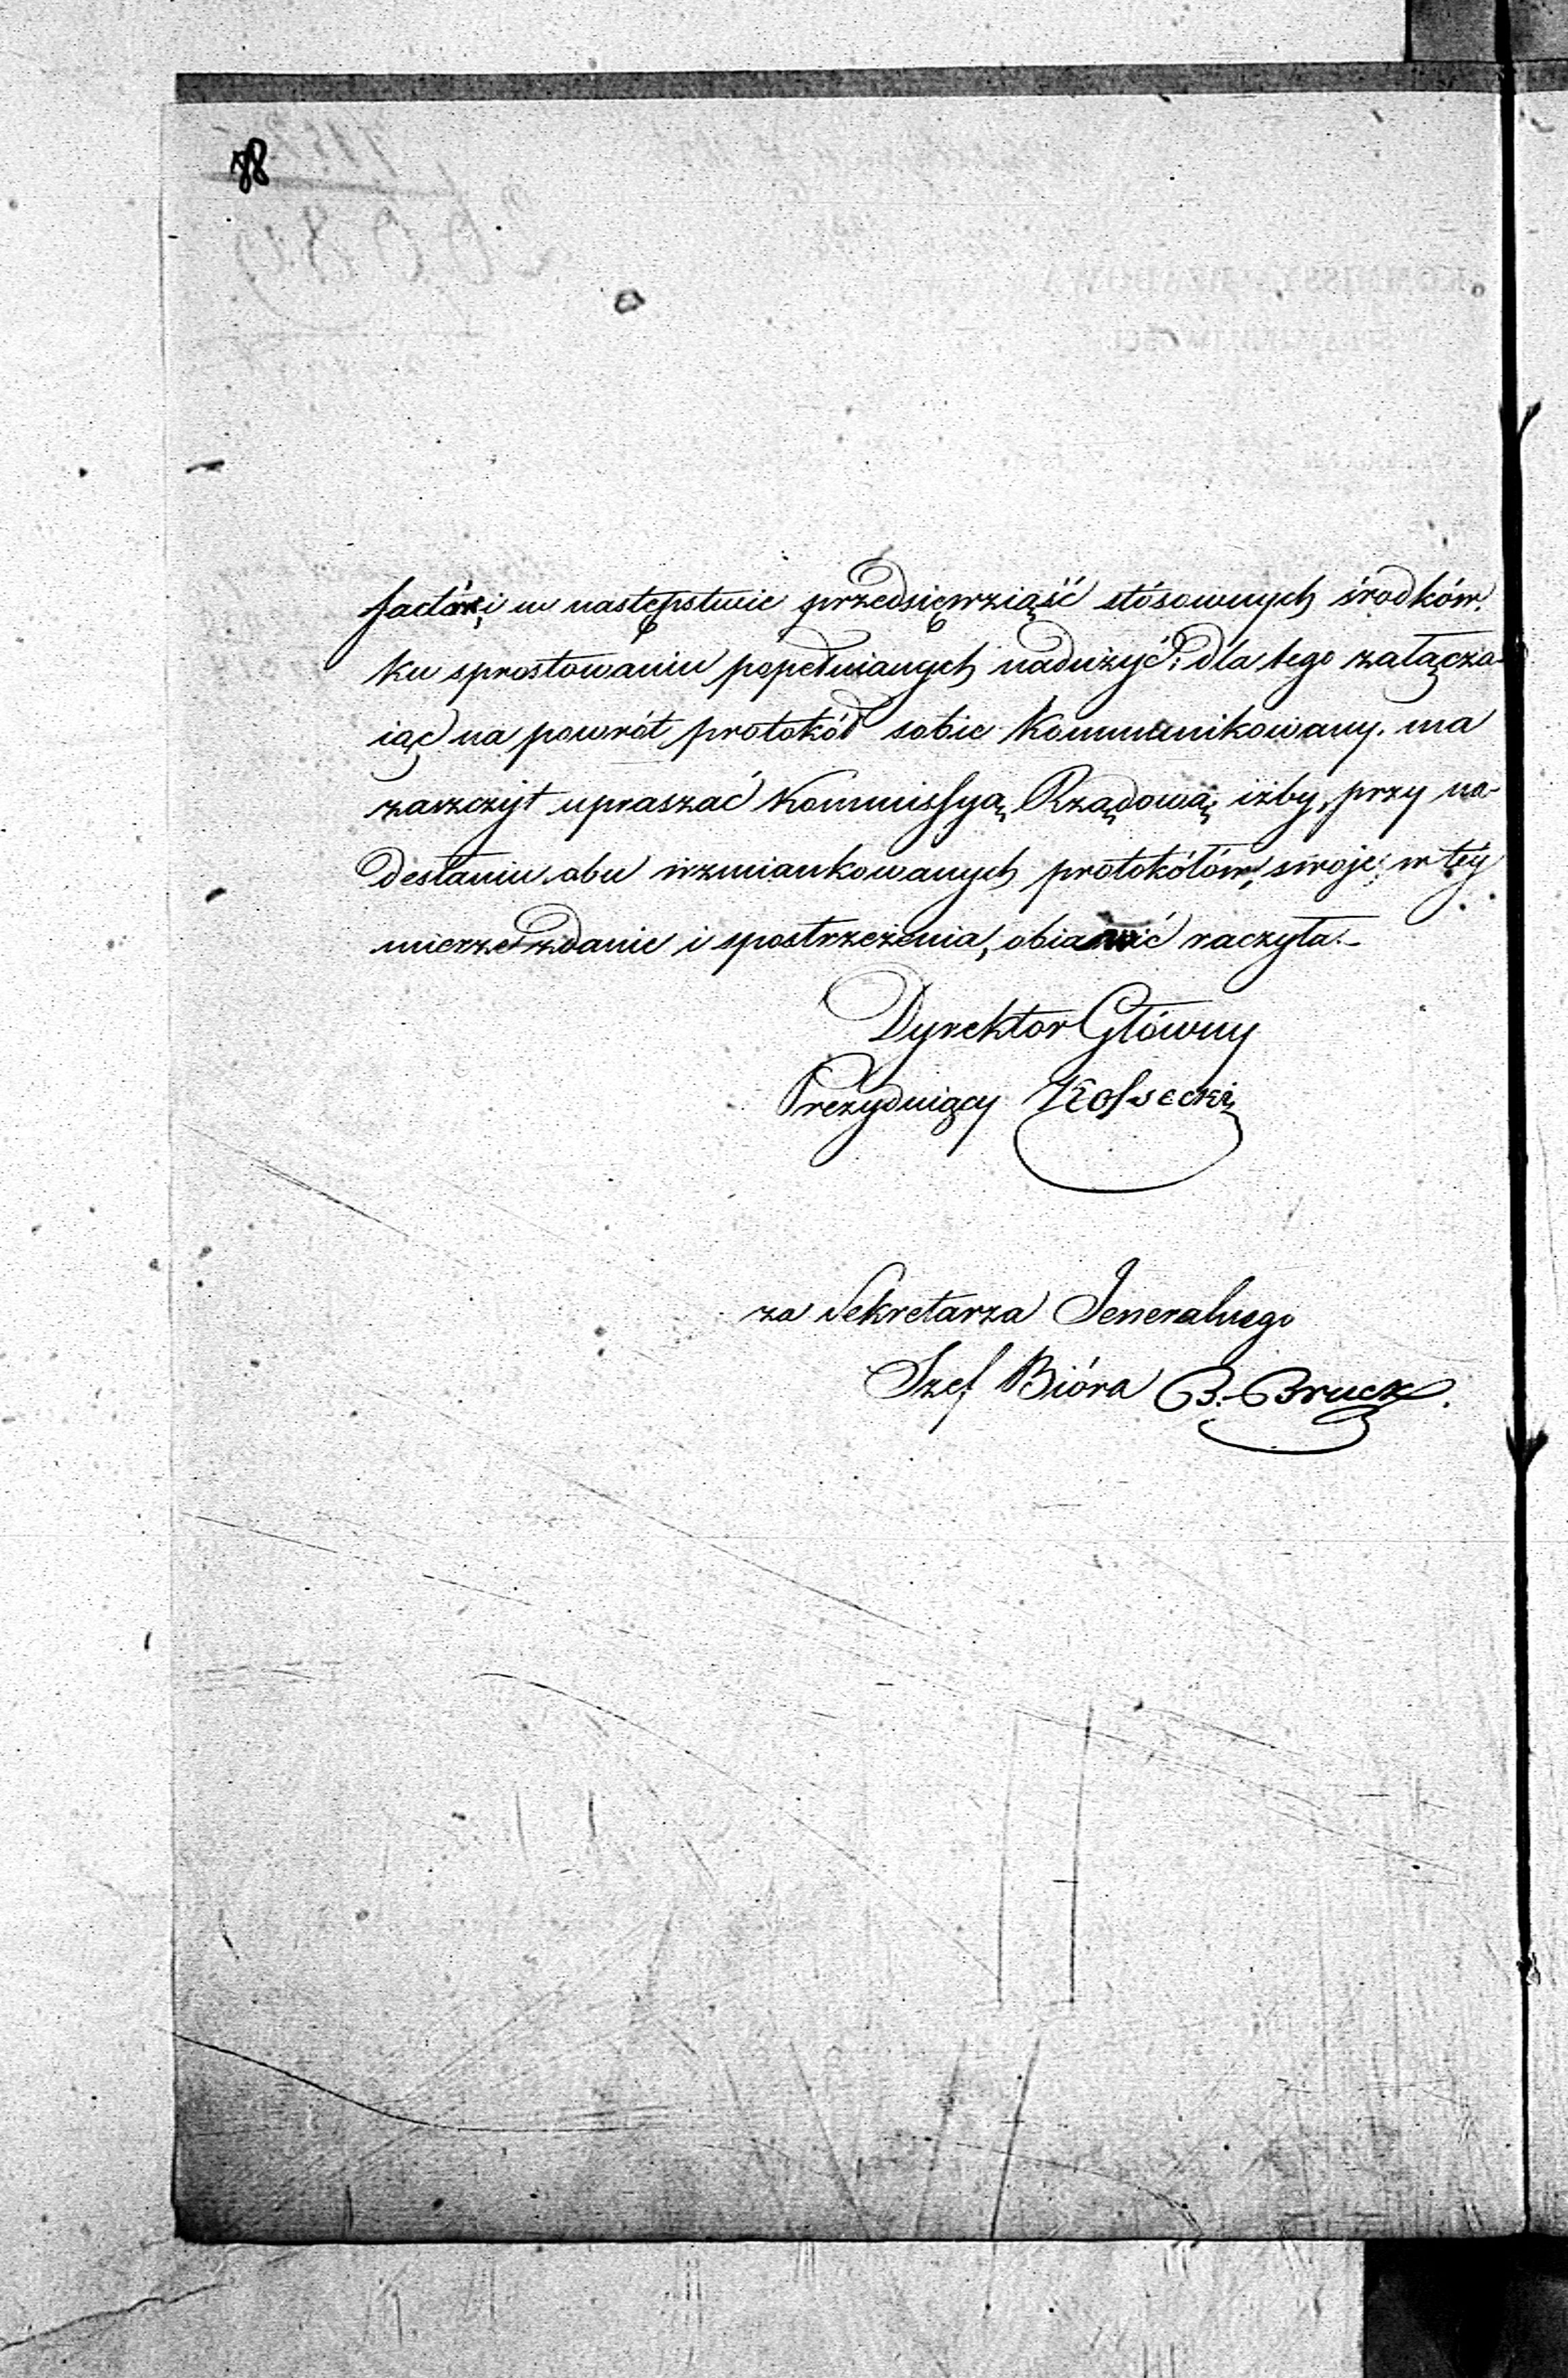 88
factóri w następstwie przedsięwziąść stósownych środków.
ku sprostowaniu popełnianych nadużyć; dla tego załącza-
iąc na powrót protokół sobie kommunikowany, ma
zaszczyt upraszać Kommissyą Rządową iżby, przy na-
desłaniu abu wzmiankowanych protokółów, swoje w tey
mierze zdanie i spostrzeżenia, obiawić raczyła.—
Dyrektor Główny
Prezyduiący Kossecki
za Sekretarza Jeneralnego
Szef Bióra B. Brucz.